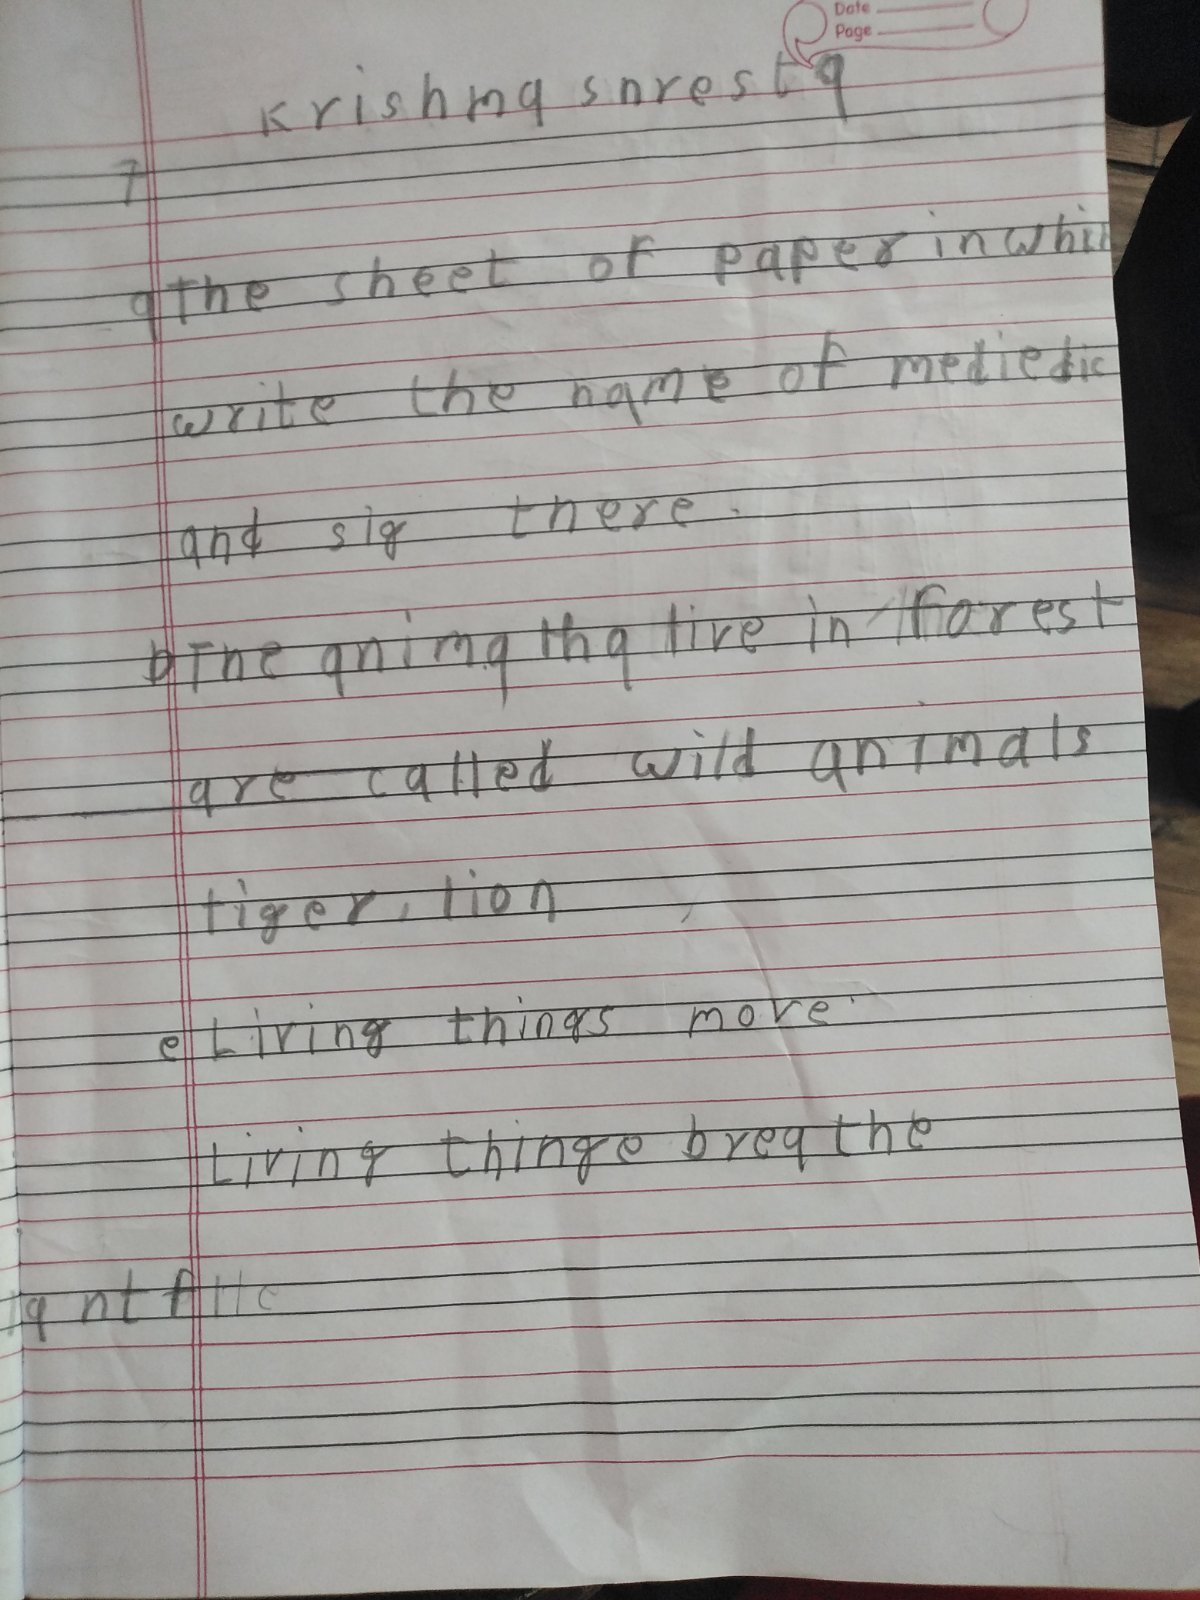 Date
Page
Krishma snresta
7
a The sheet of paper in whi
write the name of
and sig there.
b The anima tha live in forest
are called wild animals
tiger, lion
e Living things move.
Living things breathe